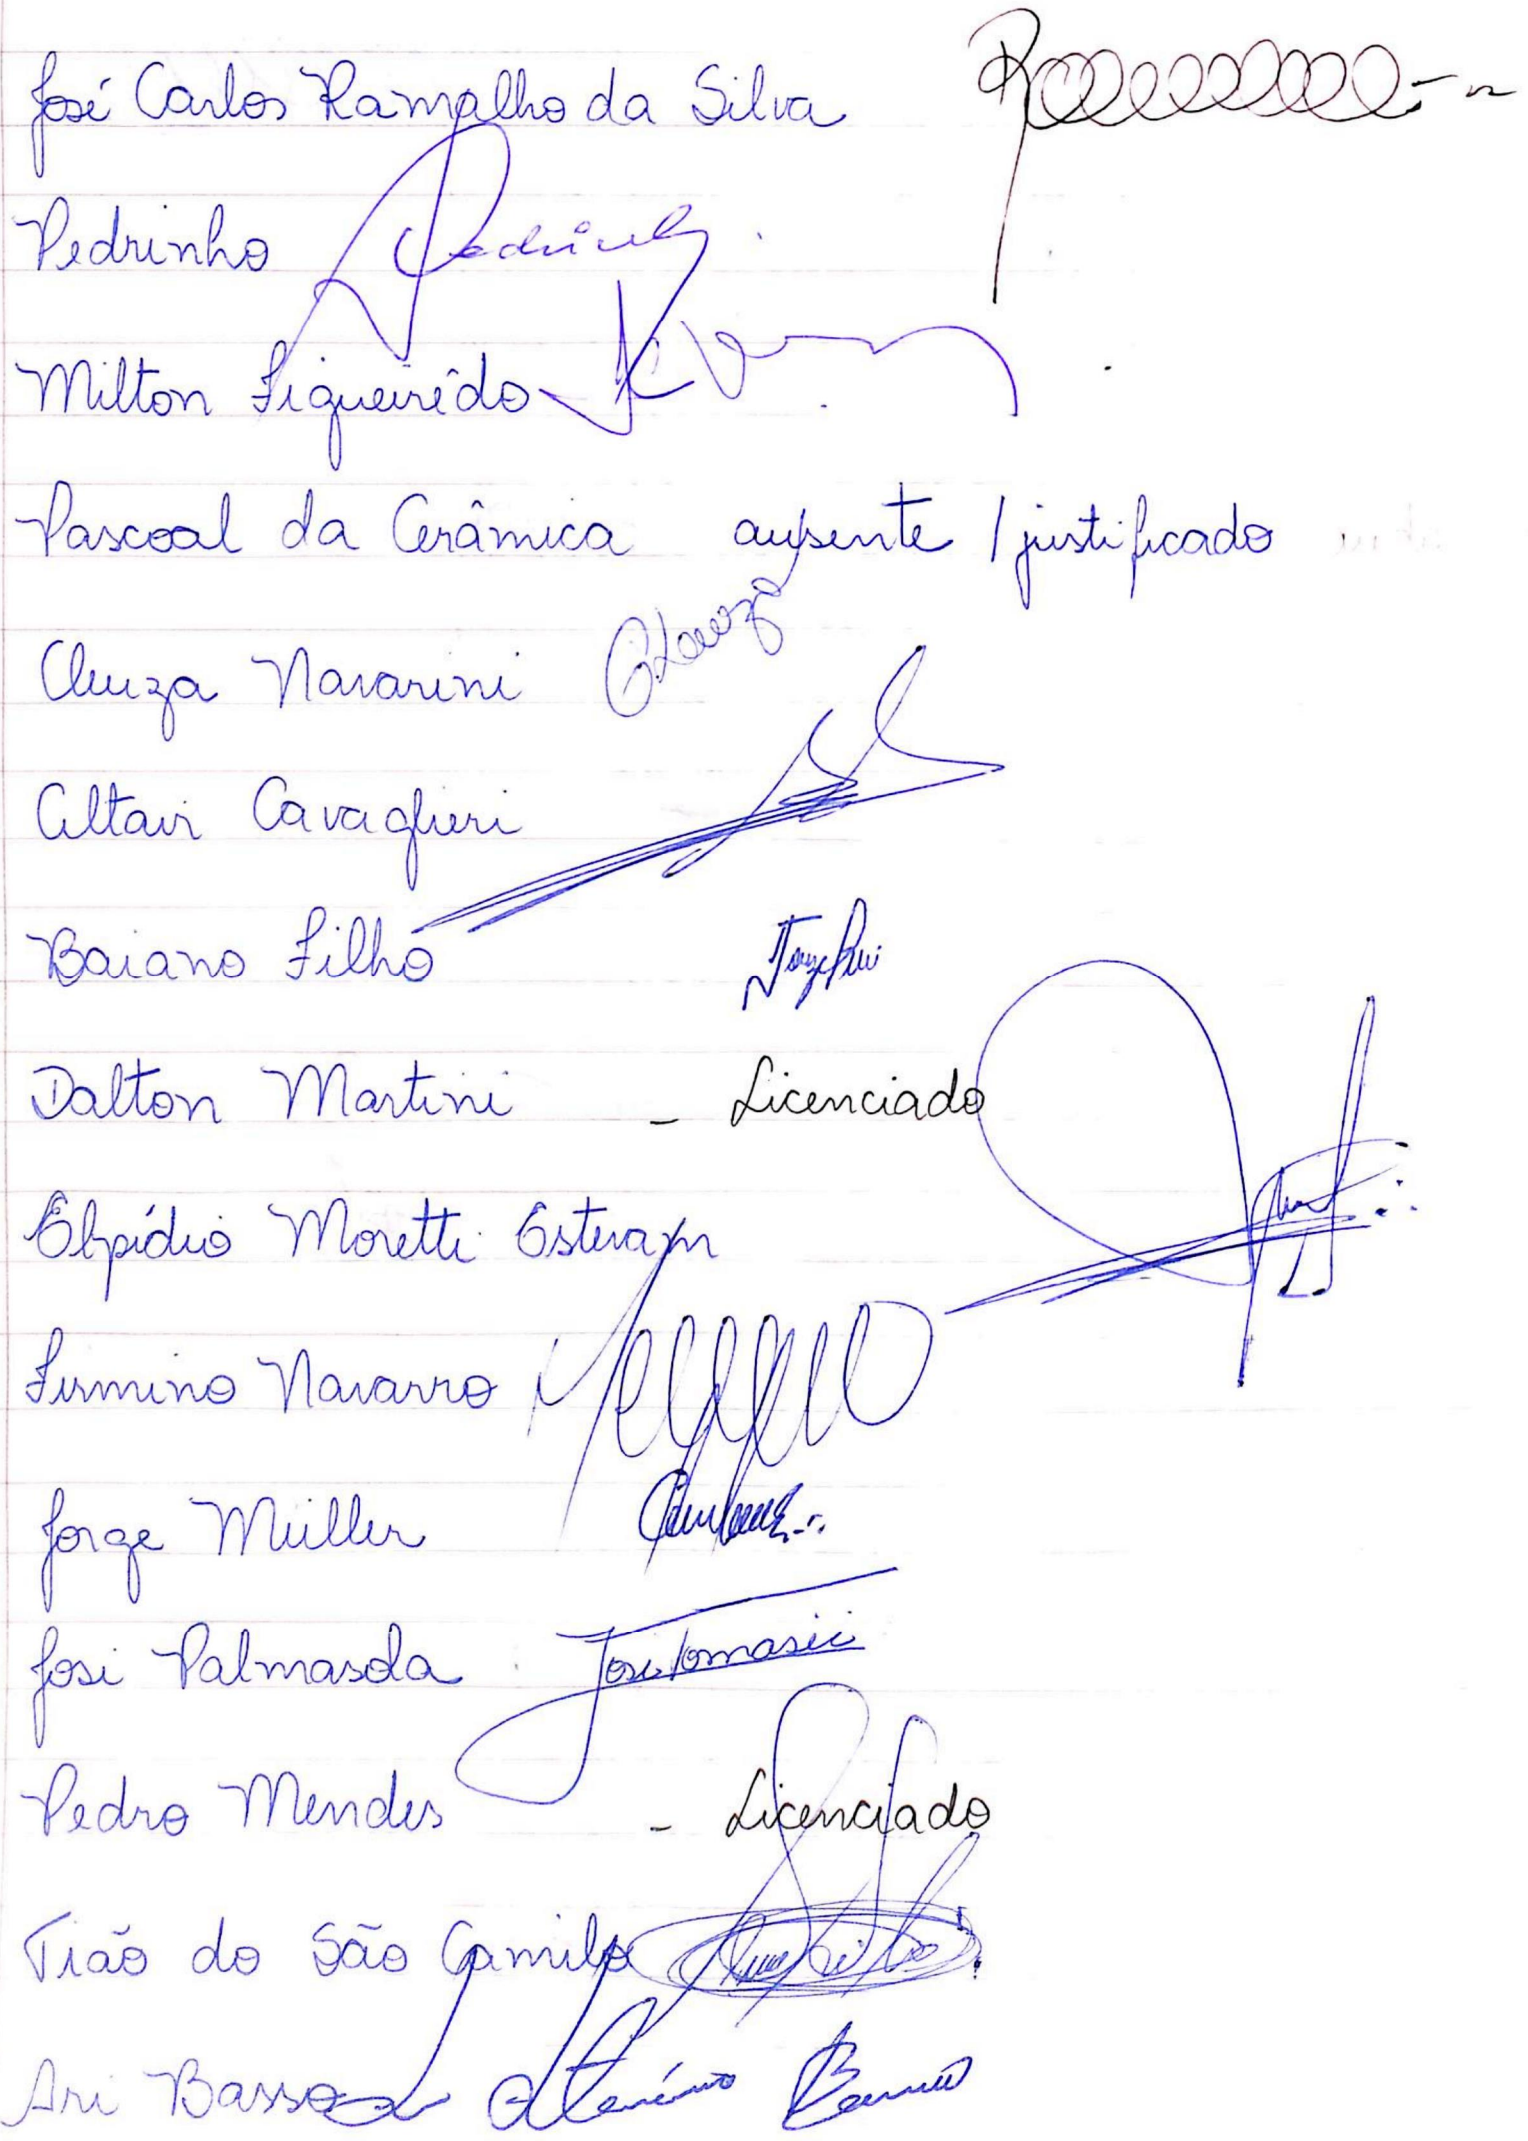 José Carlos Ramalho da Silva
Pedrinho Pedrinho
Milton Figueirêdo
Pascoal da Cerâmica ausente / justificado
Cleuza Navarini Cleuza
Altair Cavaglieri
Baiano Filho
Dalton Martini - Licenciado
Elpídio Moretti Estevam
Firmino Navarro
Jorge Müller
José Palmasola José Tomasii
Pedro Mendes - Licenciado
Tião do São Camilo
Ari Basso